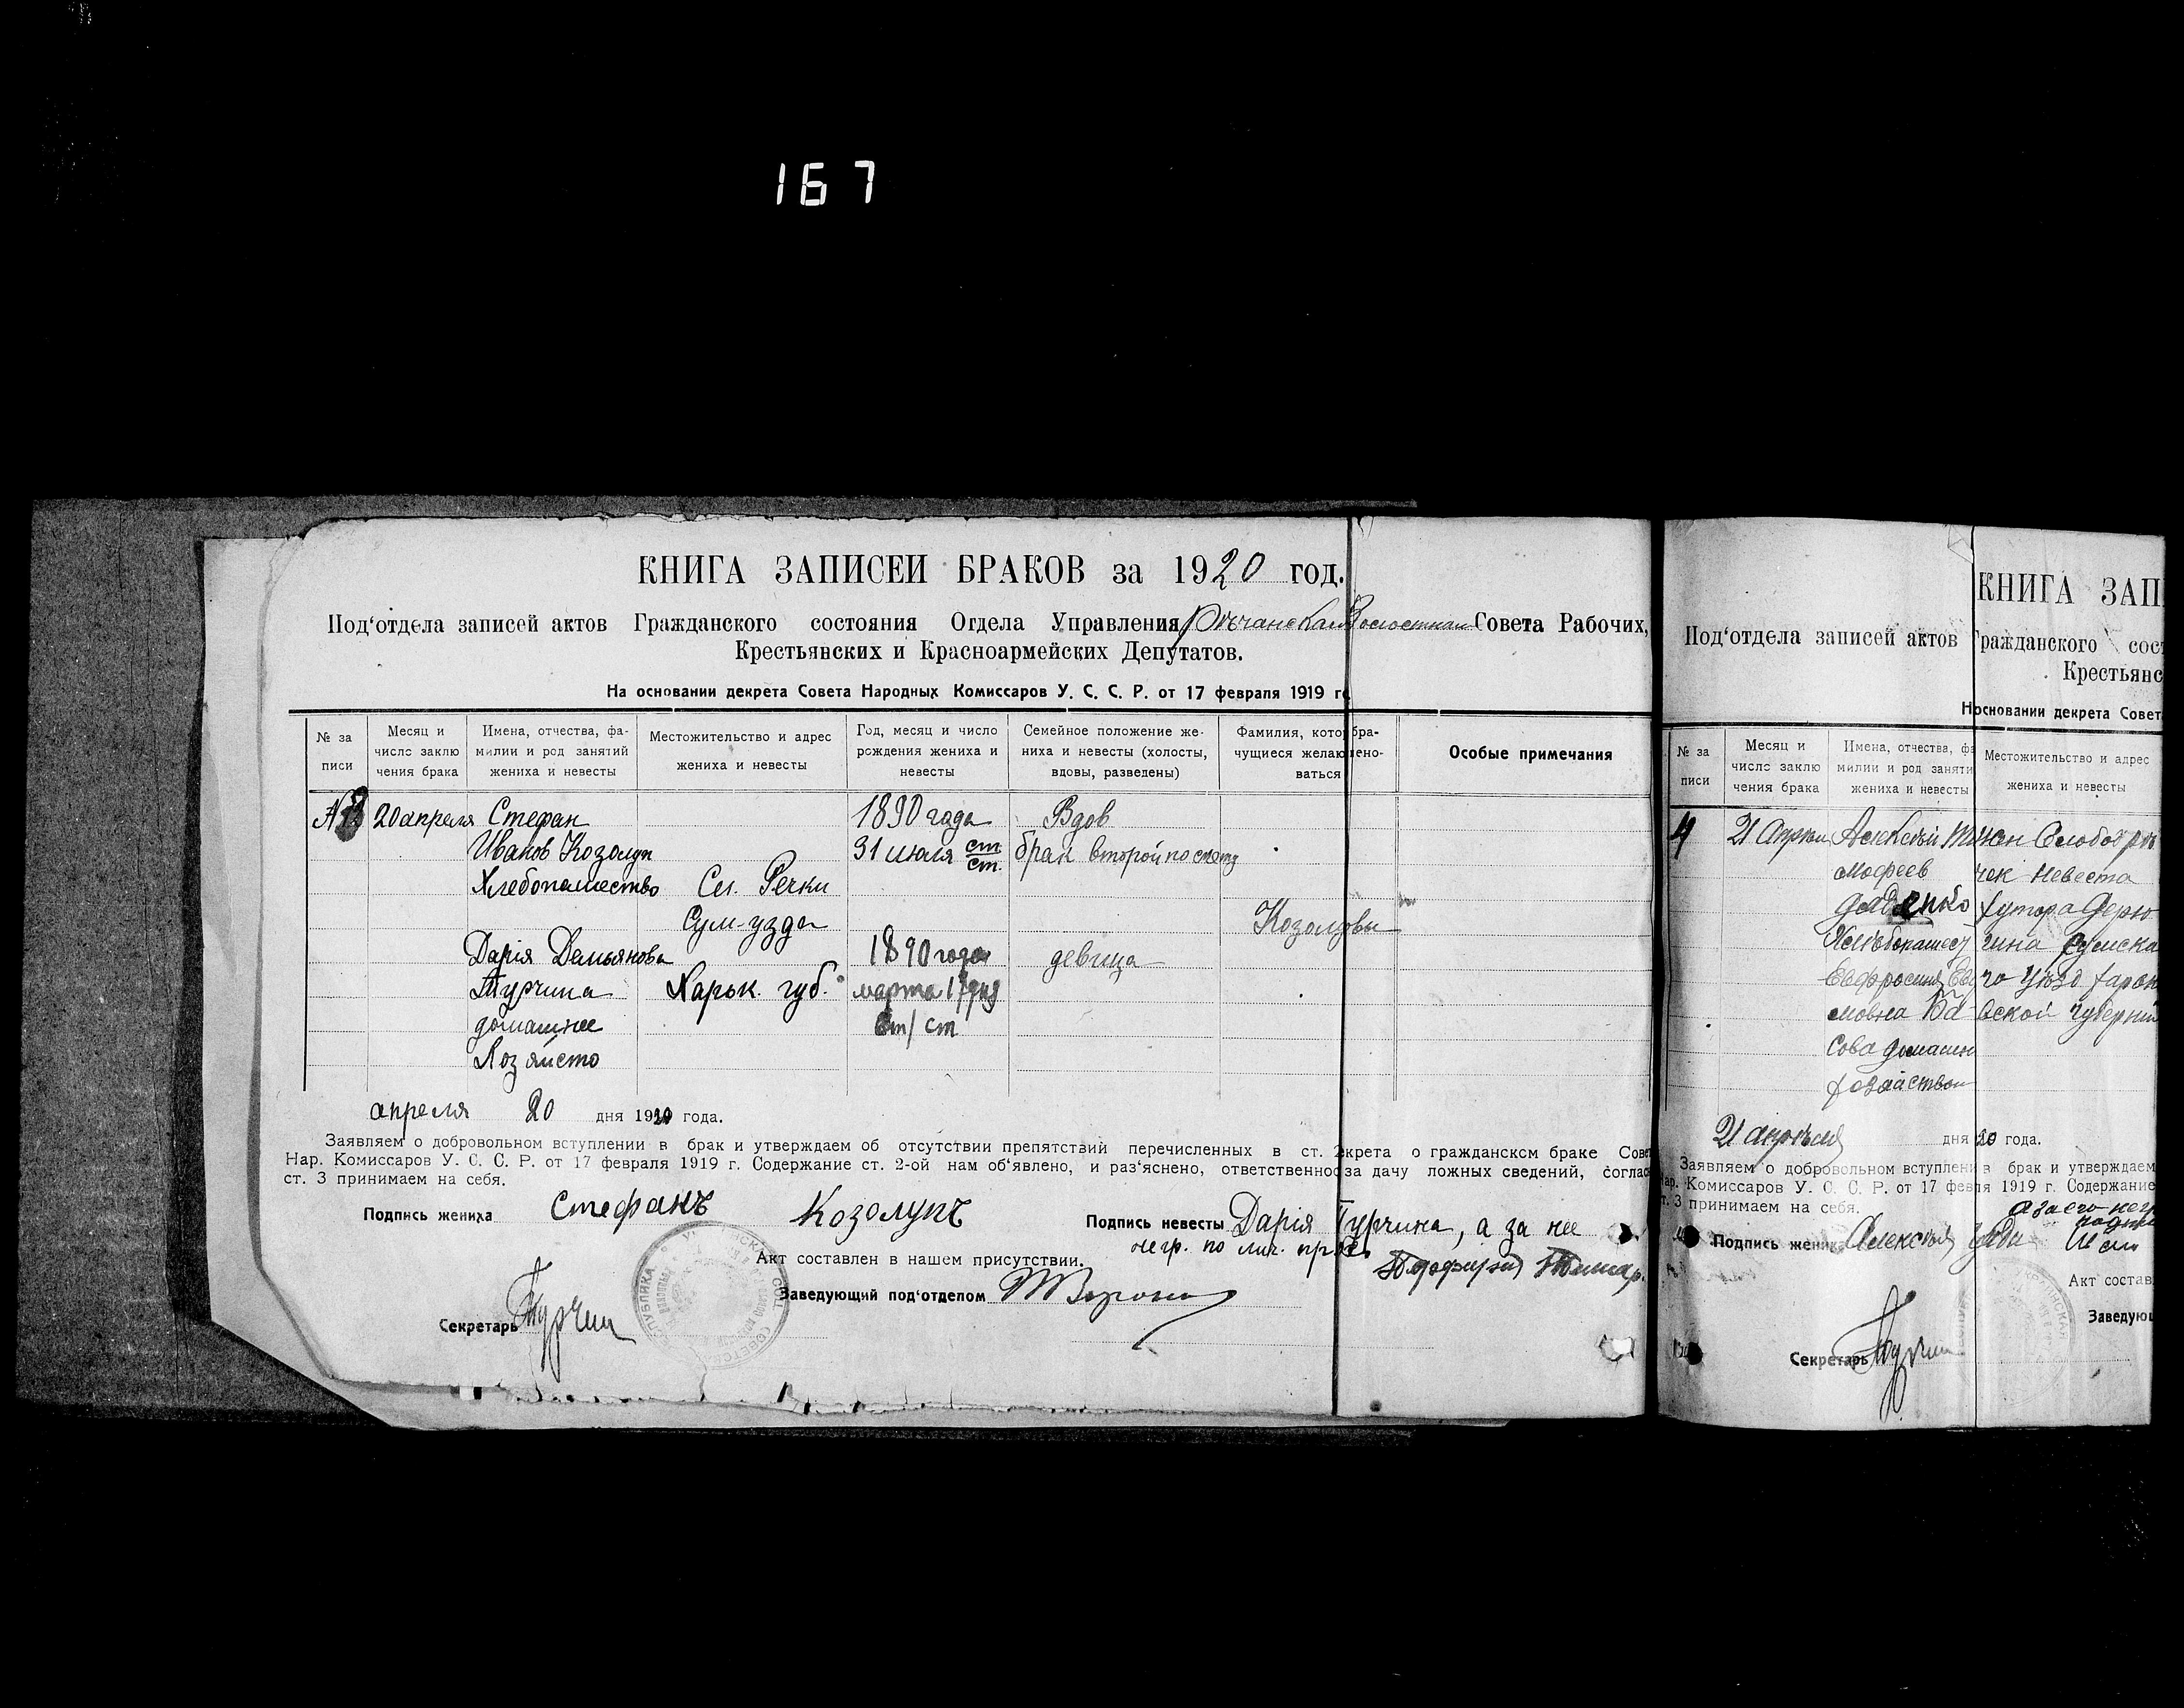 167
КНИГА ЗАПИСЕЙ БРАКОВ за 1920 год.
Под‘отдела записей актов Гражданского состояния Отдела Управления Совета Рабочих,
Крестьянских и Красноармейских Депутатов.
На основании декрета Совета Народных Комиссаров У. С. С. Р. от 17 февраля 1919 г
№ за писи
Месяц и число заклю чения брака
Имена, отчества, фа- милии и род занятий жениха и невесты
Местожительство и адрес жениха и невесты
Год, месяц и число рождения жениха и невесты
Семейное положение же- ниха и невесты (холосты, вдовы, разведены)
Фамилия, кото бра- чущиеся желаю ено- ваться
Особые примечания
20 апреля Стефан 1890 года Вдов
Иванов Козолуп 31 июля ст/ст. брак второй по счету
Хлебопашество Сел. Речки
Сум-узда Козолуповы
Дарія Демьянова 1890 года девица
Турчина Харьк. губ. марта 17 дня
домашнее ст/ст
Хозяйсто
апреля 20 дня 1920 года.
Заявляем о добровольном вступлении в брак и утверждаем об отсутствии препятствий перечисленных в ст. 2 крета о гражданском браке Сове
Нар. Комиссаров У. С. С. Р. от 17 февраля 1919 г. Содержание ст. 2-ой нам об‘явлено, и раз‘яснено, ответственнос за дачу ложных сведений, соглас
ст. 3 принимаем на себя.
Подпись жениха Стефанъ Козолупъ Подпись невесты Дарія Турчина, а за нее
негр. по лич. прось
Акт составлен в нашем присутствии.
Заведующий под‘отделом
Секретарь Турчин
КНИГА ЗАП
Под‘отдела записей актов Гражданского сост
Крестьянс
Н основании декрета Совет
№ за писи
Месяц и число заклю чения брака
Имена, отчества, фа милии и род заняти жениха и невесты
Местожительство и адрес жениха и невесты
4 21 Апреля Алексей Тимо Слобод
мофеев чек невеста
хутора
Сумска
Евфросиния го Уезд Харьк
вской губерни
сова домашн
хозяйством
21 апреля дня 20 года.
Заявляем о добровольном вступлени в брак и утверждаем
Нар. Комиссаров У. С. С. Р. от 17 фев я 1919 г. Содержание
т. 3 принимаем на себя.
а за его негр
Подпись жениха Алексей
Акт состав
Заведую
Секретарь Турчин